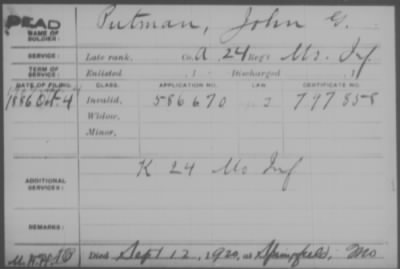 DEAD
NAME OF SOLDIER: Putman, John G.
SERVICE: Late rank, Co. A, 24 Reg't Mo. Inf
TERM OF SERVICE: Enlisted , 1 Discharged , 1
DATE OF FILING. CLASS. APPLICATION NO. LAW. CERTIFICATE NO.
1886 Oct. 4 Invalid, 586670 J 797858
Widow,
Minor,
ADDITIONAL SERVICES: K 24 Mo Inf
REMARKS:
Died Sept 12, 1920, at Springfield, Mo